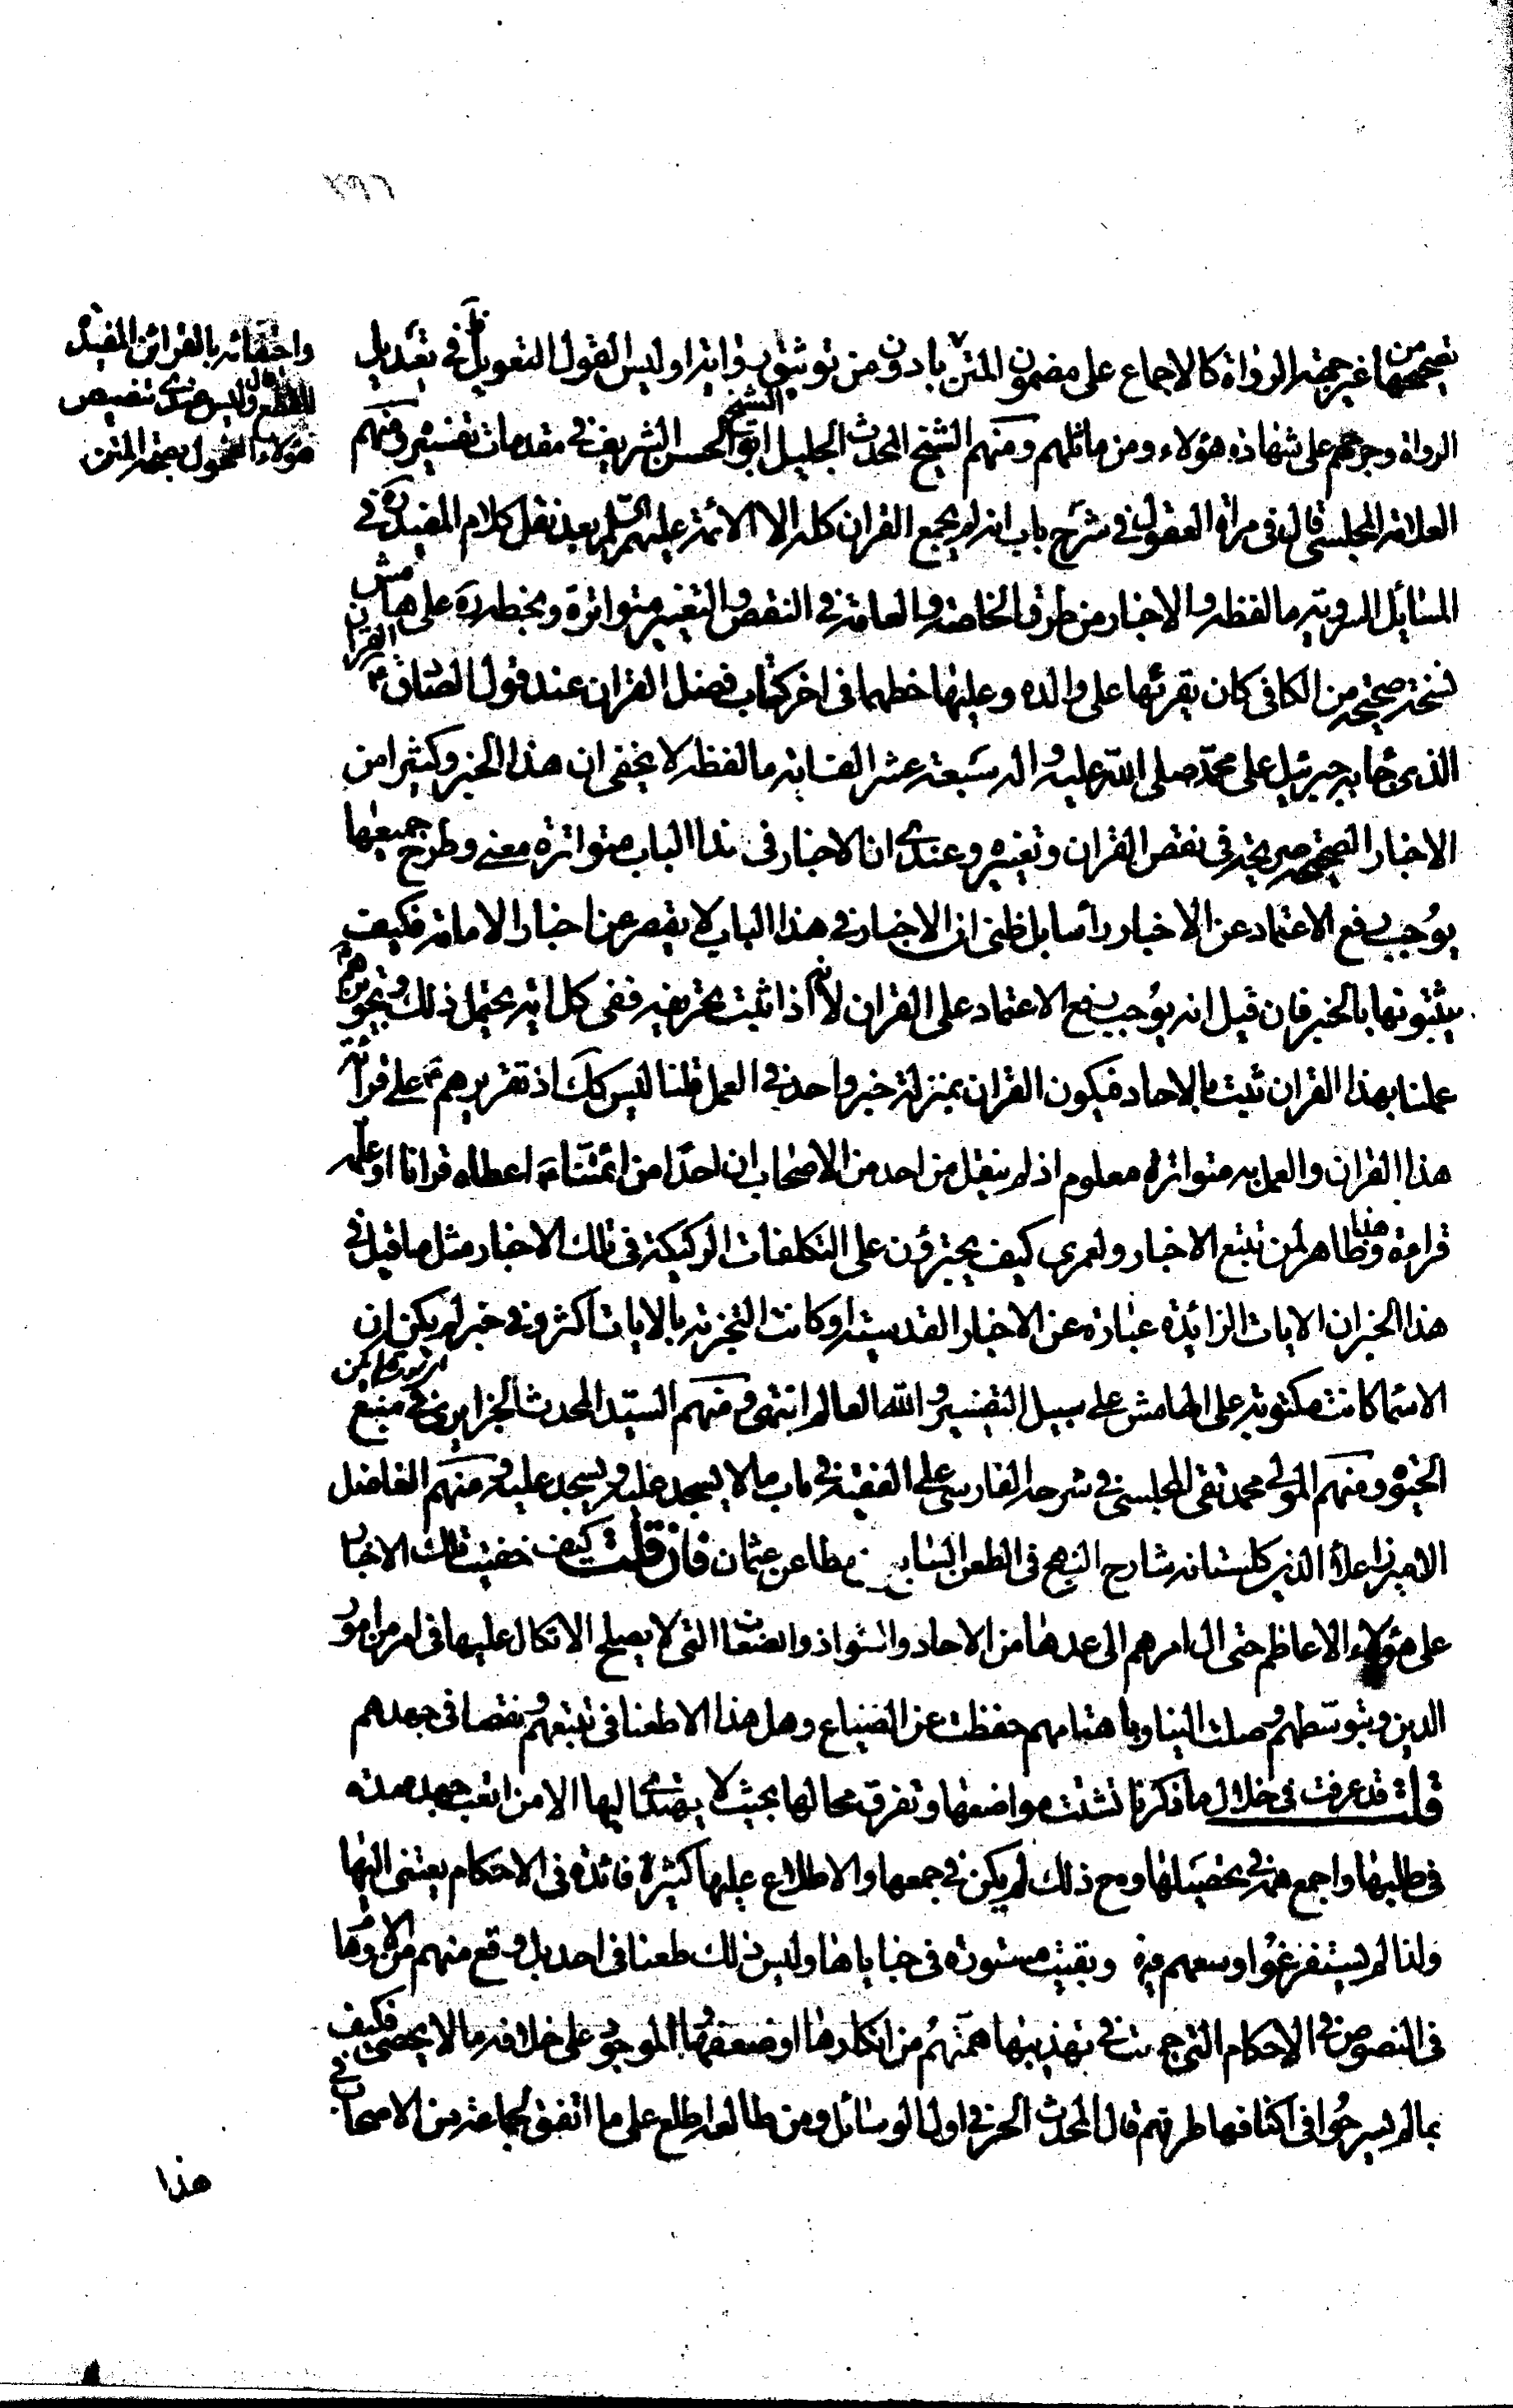 تصحيحها من غير جهة الرواة كالاجماع على مضمون المتن بادون من توثيق رواته او ليس القول التعويل في تعديل
الرواة وجرحهم على شهادة هؤلاء ومن ماثلهم ومنهم الشيخ المحدث الجليل ابو الحسن الشريف في مقدمات تفسيره ومنهم
العلامة المجلسي قال في مرآة العقول في شرح باب انه لم يجمع القران كله الا الائمة عليهم السلم بعد نقل كلام المفيد ره في
المسايل السروية ما لفظه والاخبار من طرق الخاصة والعامة في النقص والتغيير متواترة وبخطه ره على هامش
نسخة صحيحة من الكافي كان يقرئها على والده وعليها خطهما في اخر كتاب فضل القران عند قول الصادق ع القران
الذي جاء به جبرئيل على محمد صلى الله عليه واله سبعة عشر الف اية ما لفظه لا يخفى ان هذا الخبر وكثيرا من
الاخبار الصحيحة صريحة في نقص القران وتغييره وعندي ان الاخبار في هذا الباب متواترة معنى وطرح جميعها
يوجب رفع الاعتماد عن الاخبار رأسا بل ظني ان الاخبار في هذا الباب لا يقصر عن اخبار الامامة فكيف
يثبتونها بالخبر فان قيل انه يوجب رفع الاعتماد على القران لانه اذا ثبت تحريفه ففي كل اية يحتمل ذلك وتجويزهم ع
عملنا بهذا القران ثبت بالاحاد فيكون القران بمنزلة خبر واحد في العمل قلنا ليس كك اذ تقريرهم ع على قرائة
هذا القران والعمل به متواترة معلوم اذ لم ينقل من احد من الاصحاب ان احدا من ائمتنا ع اعطاه قرانا او علمه
قراءة وهذا ظاهر لمن تتبع الاخبار ولعمري كيف يجترؤن على التكلفات الركيكة في تلك الاخبار مثل ما قيل في
هذا الخبر ان الايات الزائدة عبارة عن الاخبار القدسية او كانت التجزية بالايات اكثر وفي خبر لم يكن ان
الاسماء كانت مكتوبة على الهامش على سبيل التفسير والله العالم انتهى ومنهم السيد المحدث الجزايري في منبع
الحيوة ومنهم المولى محمد تقي المجلسي في شرحه الفارسي على الفقيه في باب ما لا يسجد عليه ويسجد عليه ومنهم الفاضل
الاميرزا علاء الدين كلستانه شارح النهج في الطعن السابع من مطاعن عثمان فان قلت كيف خفيت تلك الاخبار
على هؤلاء الاعاظم حتى ال امرهم الى عدها من الاحاد والشواذ والضعاف التي لا يصلح الاتكال عليها في امر من امور
الدين وبتوسطهم وصلت الينا وباهتمامهم حفظت عن الضياع وهل هذا الا طعنا في تتبعهم ونقصا في جهدهم
قلت قد عرفت في خلال ما ذكرنا تشتت مواضعها وتفرق محالها بحيث لا يهتدي اليها الا من اتعب جهده مدة
في طلبها واجمع همه في تحصيلها ومع ذلك لم يكن في جمعها والاطلاع عليها كثيرة فائدة في الاحكام يعتنى اليها
ولذا لم يستفرغوا وسعهم فيه وبقيت مستورة في خباياها وليس ذلك طعنا في احد بل وقع منهم من الامور
في النصوص في الاحكام التي في تهذيبها همتهم من انكارها او ضعفها الموجود على خلافه ما لا يحصى فكيف
بما لم يسرحوا في اكنافها طرفهم قال المحدث الحر في اول الوسائل ومن طالعه اطلع على ما اتفق لجماعة من الاصحاب في
هذا
واحتفائه بالقرائن المفيدة
للقطع وليس عندي تنصيص
هؤلاء الفحول بصحة المتن